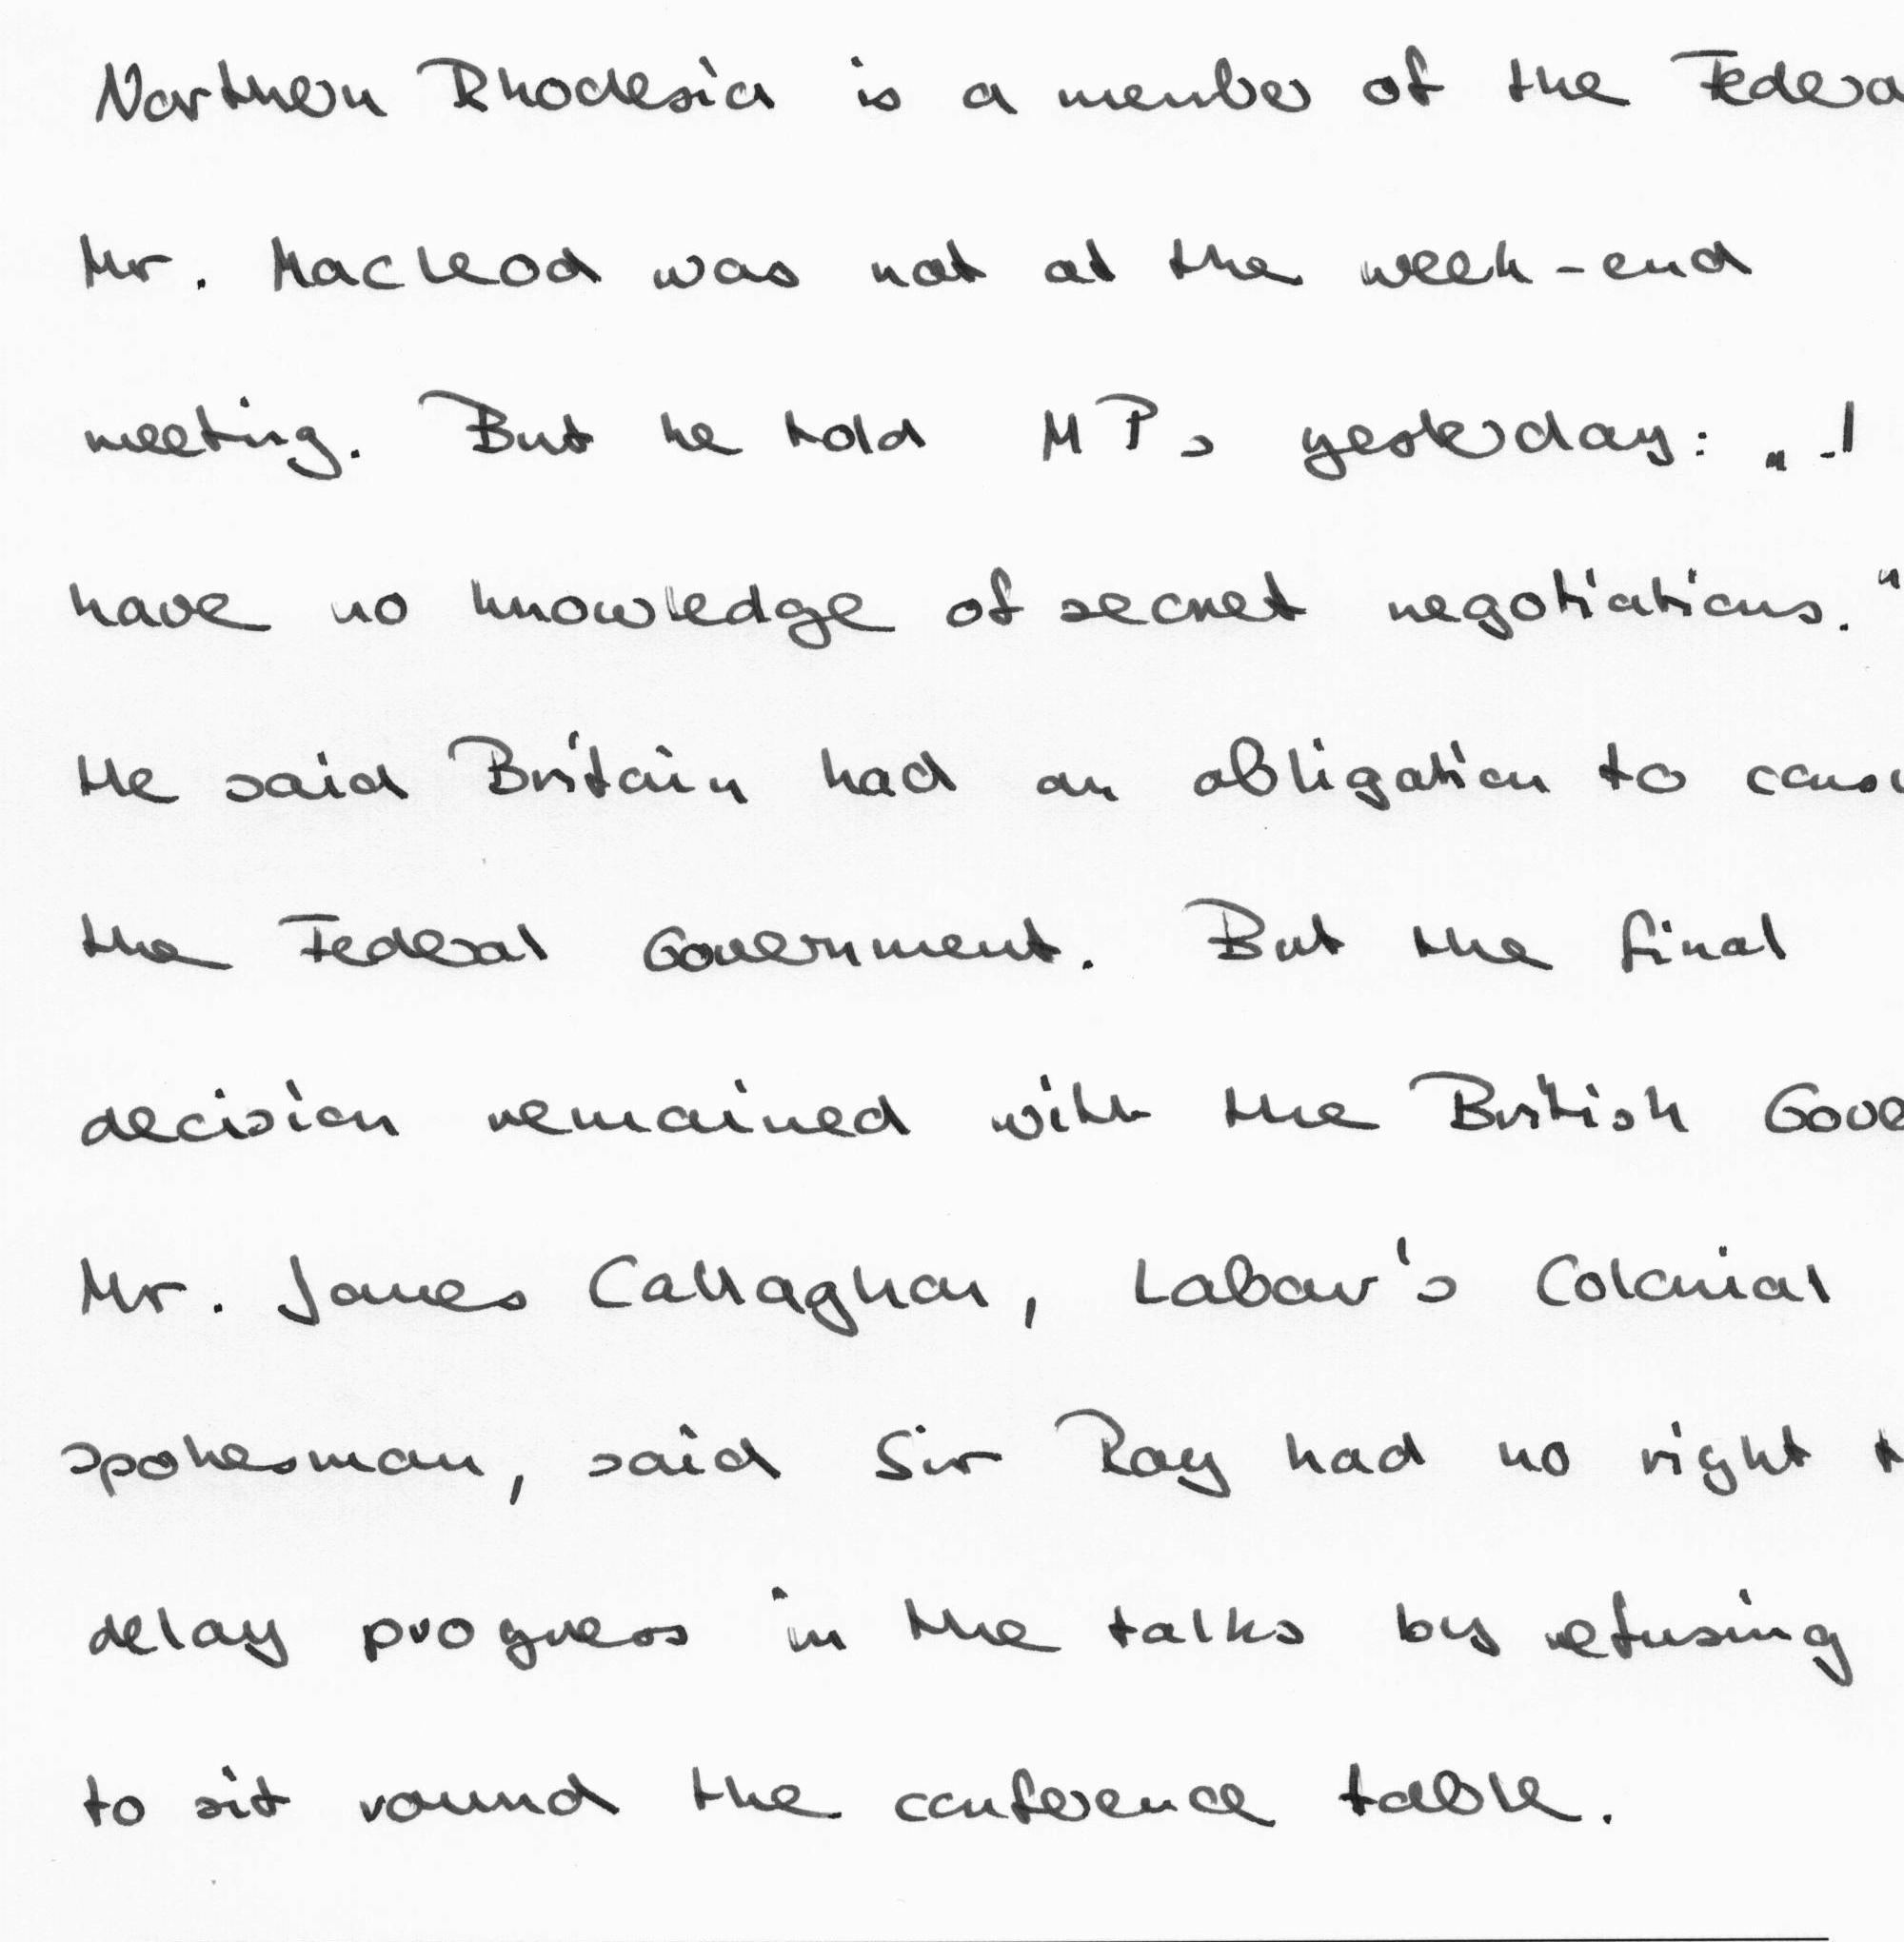 Northern Rhodesia is a member of the Federa
Mr. Macleod was not at the week-end
meeting. But he told MPs yesterday: „I
have no knowledge of secret negotiations."
He said Britain had an obligation to consu
the Federal Government. But the final
decision remained with the British Gove
Mr. James Callaghan, Labour's Colonial
spokesman, said Sir Roy had no right t
delay progress in the talks by refusing
to sit round the conference table.